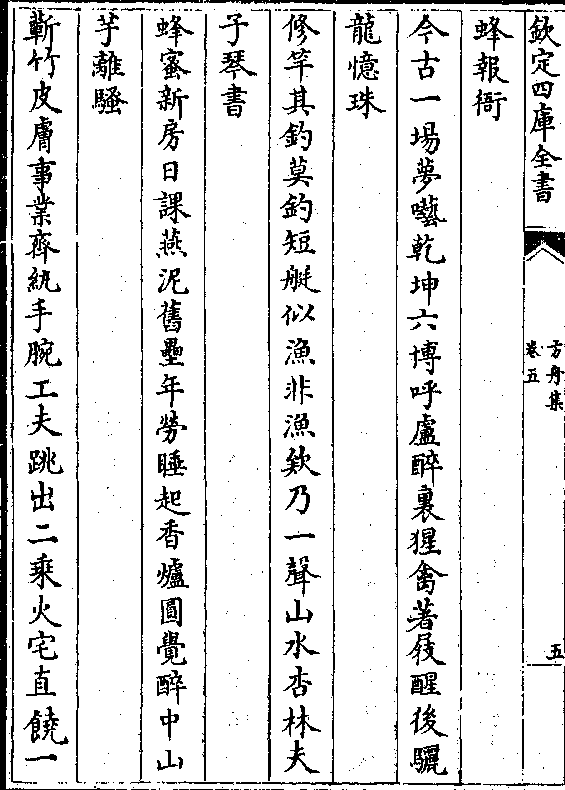 欽定四庫全書
方舟集
卷五
五
蜂報衙
今古一場夢囈乾坤六博呼盧醉裏猩禽著屐醒後驪
龍憶珠
修竿其釣莫釣短艇似漁非漁欸乃一聲山水杏林夫
子琴書
蜂蜜新房日課燕泥舊壘年勞睡起香爐圓覺醉中山
芋離騷
蘄竹皮膚事業齊紈手腕工夫跳出二乘火宅直饒一